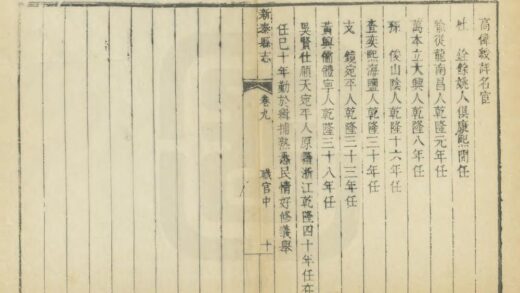 高偉戰詳名宦
杜 詮餘姚人俱康熙間任
喻從龍南昌人乾隆元年任
萬本立大興人乾隆八年任
孫 俊山陰人乾隆十六年任
查奕熙海鹽人乾隆三十年任
支 鏡宛平人乾隆三十三年任
黃興儒體寧人乾隆三十八年任
吳賢仕順天宛平人原籍浙江乾隆四十年任在
任已十年勤於緝捕熟悉民情好修義舉
新泰縣志 卷九 職官中 十